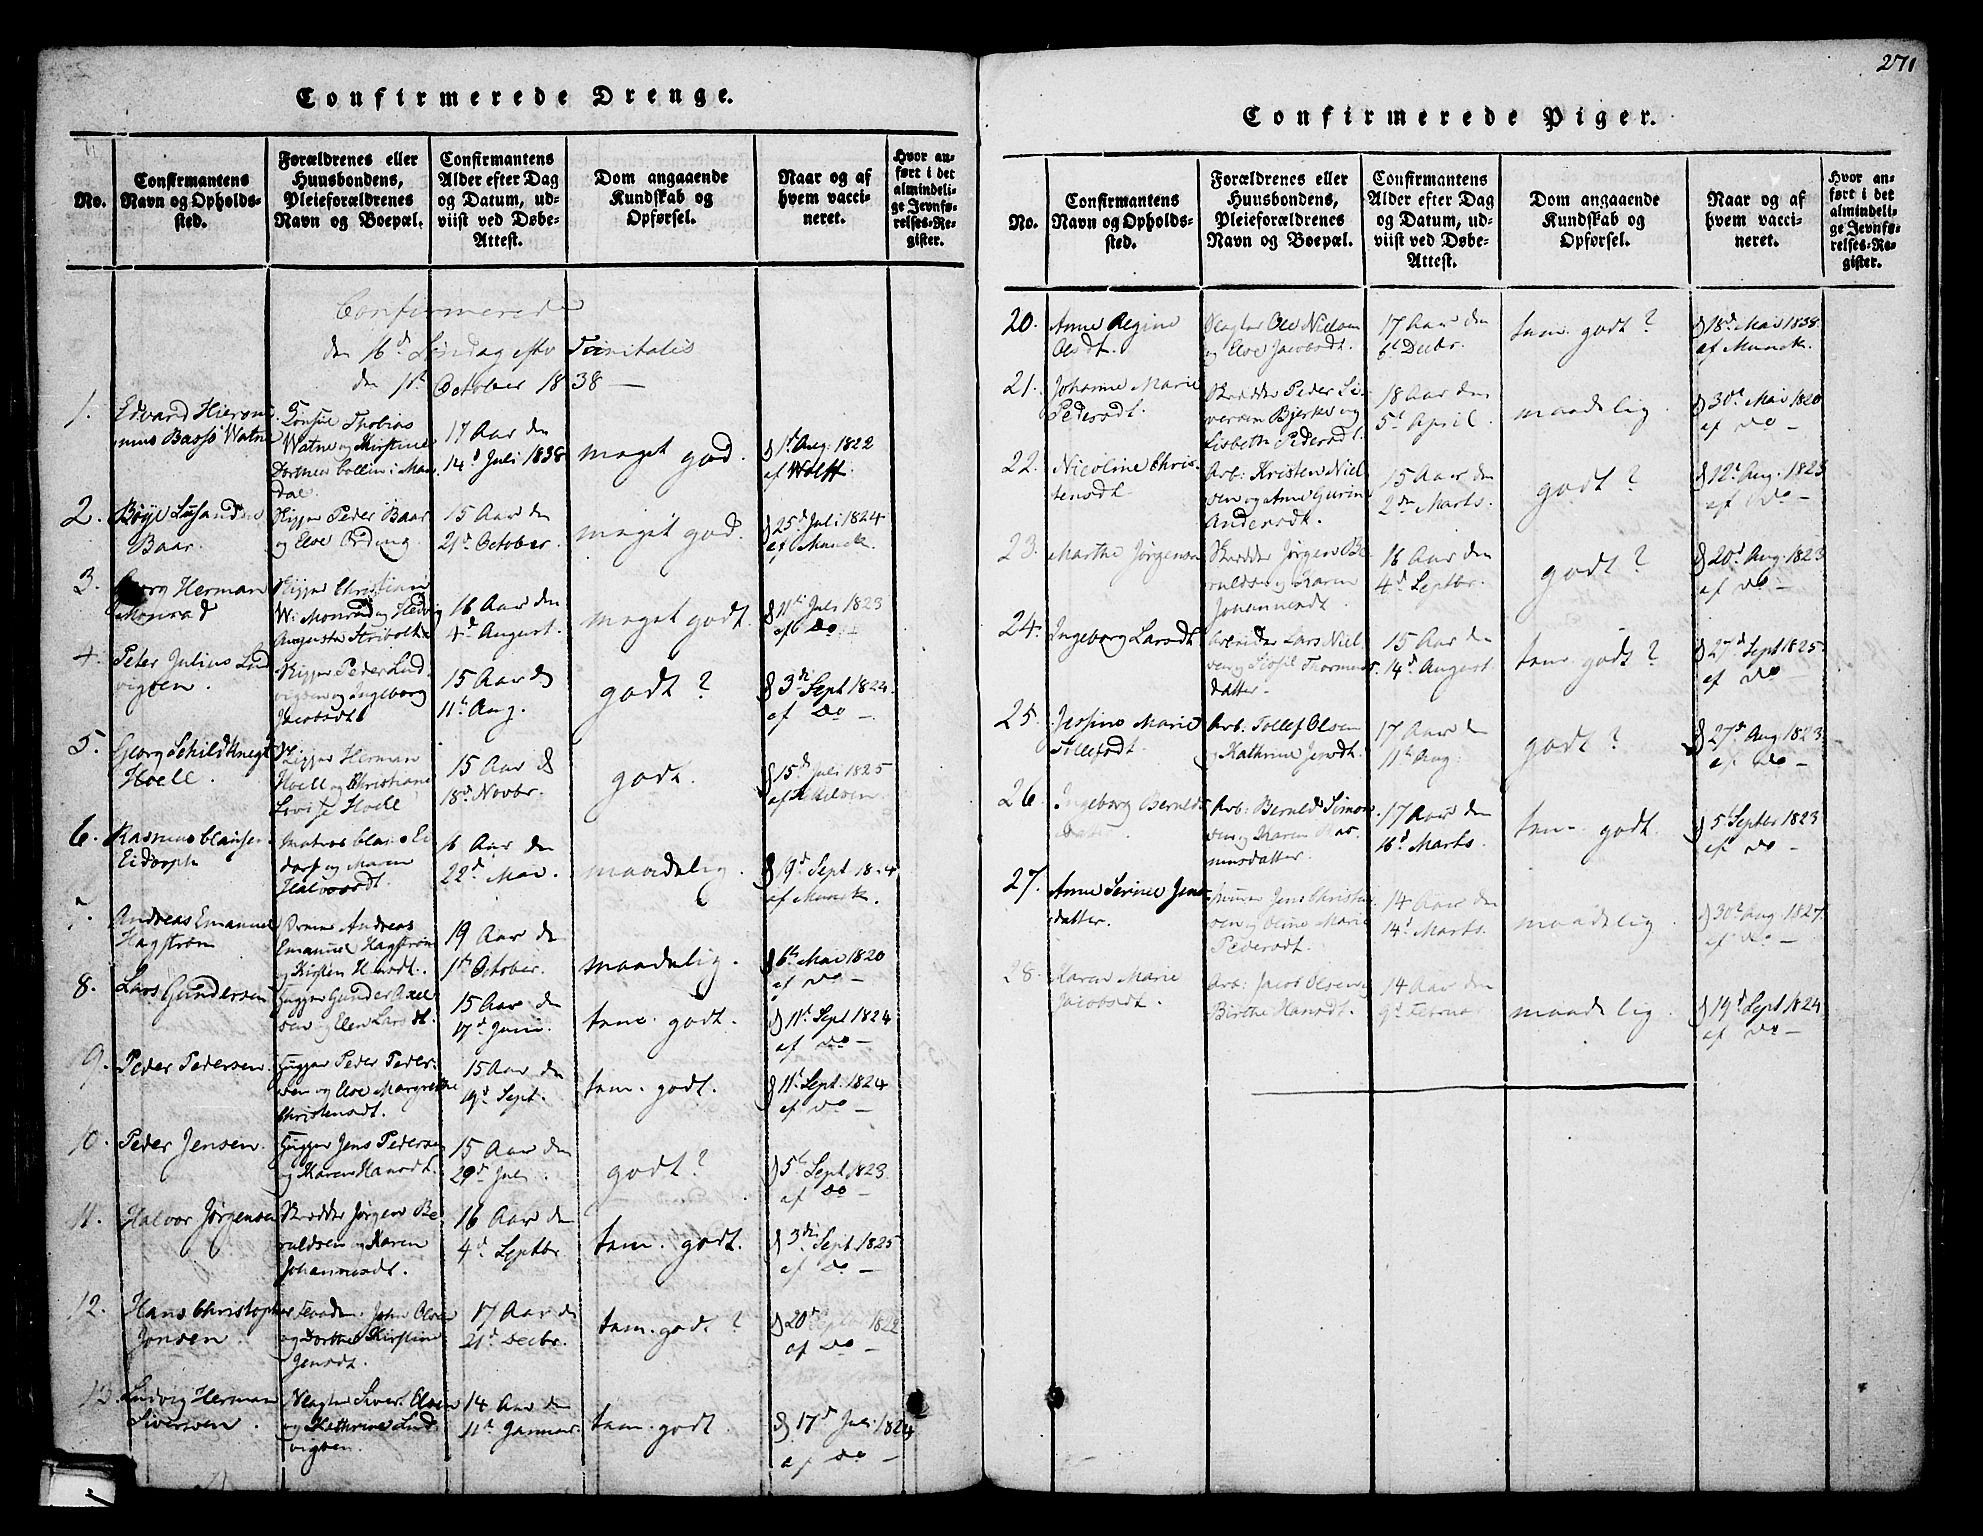 271
Confirmerede Drenge.
No.
Confirmantens
Navn og Opholds-
sted.
Forældrenes eller
Huusbondens,
Pleieforældrenes
Navn og Boepæl.
Confirmantens
Alder efter Dag
og Datum, ud-
viist ved Døbe-
Attest.
Dom angaaende
Kundskab og
Opførsel.
Naar og af
hvem vacci-
neret.
Hvor an-
ført i det
almindeli-
ge Jevnfø-
relses-Re-
gister.
Confirmerede
den 16d Søndag efter Trinitatis
den 1ste October 1838 —
1.
Edvard Hieron
nimus Basse Watne
Consul Thobias
Watne og Kirstine
Collin i Man
dal.
17 Aar den
14d Juli 1838
meget god.
d 1st Aug. 1822
af Wolff.
2.
Baar.
Skipper Peder Baar
og Else
15 Aar den
21d October.
meget god.
d 25d Juli 1824
af Munck.
3.
Georg Herman
Monrad
Skipper Christian
W: Monrad og Hedvig
Augusta Stribolt
16 Aar den
4d August.
meget godt.
d 11te Juli 1823
af Do —
4.
Peter Julius Lud
vigsen.
Skipper Peder Lud
vigsen og Ingeborg
Jacobsdt.
15 Aar d
11te Aug.
godt ?
d 3die Sept 1824.
af Do —
5.
Georg Schildknegt
Hoell.
Skipper Herman
Hoell og Christiane
Lovise Hoell
15 Aar d
18d Novbr.
godt.
d 15d Juli 1825
af
6.
Rasmus Clausen
Eidorph
Matros Clas Ei
dorf og Maren
Halvorsdt.
16 Aar den
22d Mai.
maadelig.
d 19d Sept 18-4
af Munck.
7.
Andreas Emanuel
Hagstrøm
Andreas
Emanuel Hagstrøm
og Kirsten Hansdt.
19 Aar den
1ste October.
maadelig.
d 6te Mai 1820
af Do —
8.
Lars Gundersen
Hugger Gunder Axel
sen og Elen Larsdt.
15 Aar den
17d Juni.
tem. godt.
d 11te Sept 1824
af Do —
9.
Peder Pedersen
Hugger Peder Peder
sen og Else Margrethe
Christensdt.
15 Aar den
19d Sept.
tem. godt.
d 11te Sept. 1824
af Do —
10.
Peder Jensen.
Hugger Jens Pedersen
og Karen Hansdt.
15 Aar den
29d Juli.
godt ?
d 5te Sept 1823
af Do —
11.
Halvor Jørgensen
Skrædder Jørgen Be
ruldsen og Karen
Johannesdt.
16 Aar den
4d Septbr
tem. godt.
d 3die Sept 1825
af Do —
12.
Hans Christopher
Jonsen
John Olsen
og Dorthe Kirstine
Jensdt.
17 Aar den
21d Decbr.
tem. godt ?
d 20d Septbr 1822
af Do —
13.
Ludvig Herman
Siversen
Sivert Olsen
og Kathrine Lud
vigsen.
14 Aar den
11te Januar.
tem. godt
d 17d Juli 1824
af Do —
Confirmerede Piger.
No.
Confirmantens
Navn og Opholds-
sted.
Forældrenes eller
Huusbondens,
Pleieforældrenes
Navn og Boepæl.
Confirmantens
Alder efter Dag
og Datum, ud-
viist ved Døbe-
Attest.
Dom angaaende
Kundskab og
Opførsel.
Naar og af
hvem vacci-
neret.
Hvor an-
ført i det
almindeli-
ge Jevnfø-
relses-Re-
gister.
20.
Anne Regine
Olsdt.
Ole Nielsen
og Else Jacobsdt.
17 Aar den
6te Decbr.
tem. godt ?
d 18d Mai 1838.
af Munck.
21.
Johanne Marie
Pedersdt.
Skrædder Peder Si
versen Bjerke og
Lisbeth Pedersdt.
18 Aar den
5te April.
maadelig.
d 30d Mai 1820
af Do —
22.
Nicoline Chris
tensdt
Arb: Kristen Niel
sen og Anne Gurine
Andersdt.
15 Aar den
2den Marts.
godt ?
d 12d Aug. 1823
af Do —
23.
Marthe Jørgensen
Skrædder Jørgen Be
ruldsen og Karen
Johannesdt.
16 Aar den
4d Septbr.
godt ?
d 20d Aug. 1823
af Do —
24.
Ingeborg Larsdt
Lars Niel
sen og
datter.
15 Aar den
14d August.
tem. godt ?
d 27d Sept 1825
af Do —
25.
Jessine Marie
Tollefsdt.
Arb. Tollef Olsen
og Kathrine Jensdt.
17 Aar den
11te Aug.
godt ?
d 27d Aug. 1823
af Do —
26.
Ingeborg Bernlds
datter.
Arb: Bernld Simon
sen og Karen Ras
musdatter.
17 Aar den
16d Marts.
tem. godt.
d 5te Septbr 1823
af Do —
27.
Anne Serine Jens
datter.
Jens Christen
sen og Oline Marie
Pedersdt.
14 Aar den
14d Marts.
maadelig.
d 30d Aug 1827.
af Do —
28.
Karen Marie
Jacobsdt.
Arb: Jacob Olsen og
Birthe Hansdt.
14 Aar den
9d Februar
maadelig.
d 19d Sept 1824
af Do —